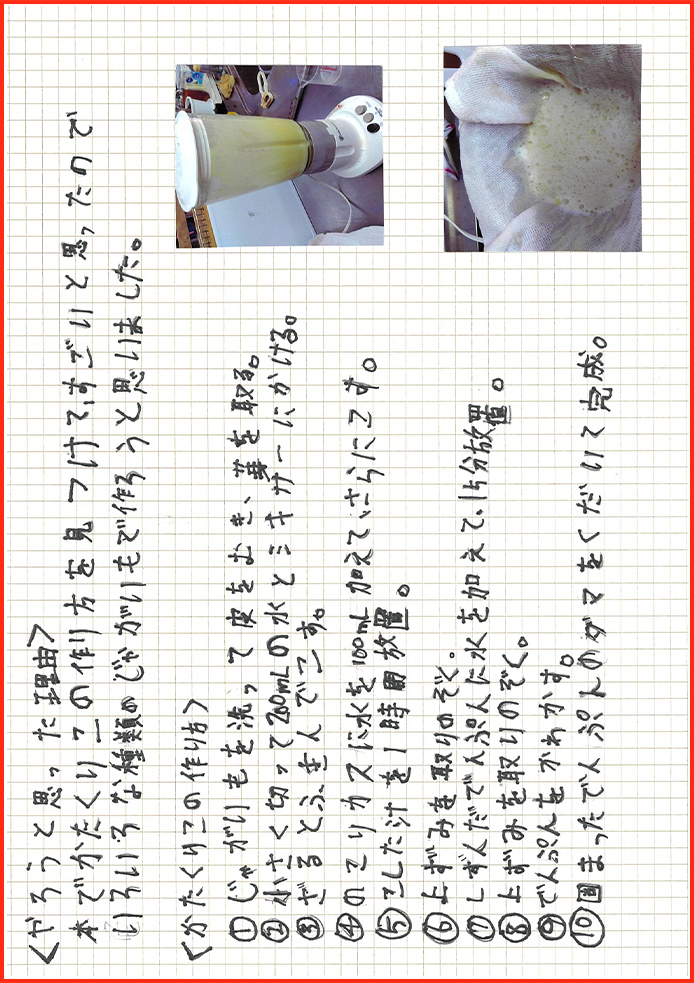 <やろうと思った理由>
本でかたくりこの作り方を見つけて、すごいと思ったので
いろいろな種類のじゃがいもで作ろうと思いました。
<かたくりこの作り方>
①じゃがいもを洗って皮をむき、芽を取る。
②小さく切って200mLの水とミキサーにかける。
③ざるとふきんでこす。
④のこりカスに水を100mL加えて、さらにこす。
⑤こした汁を1時間放置。
⑥上ずみを取りのぞく。
⑦しずんだでんぷんに水を加えて、15分放置。
⑧上ずみを取りのぞく。
⑨でんぷんをかわかす。
⑩固まったでんぷんのダマをくだいて完成。